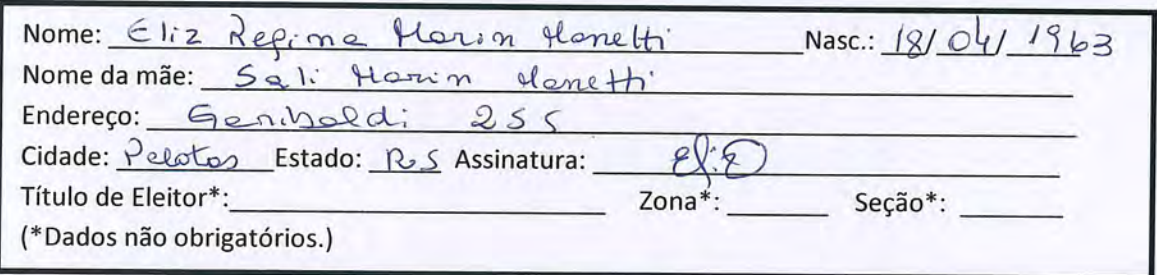 Nome: Eliz Regina Marin Manetti Nasc.: 18/04/1963
Nome da mãe: Sali Marin Manetti
Endereço: Garibaldi 255
Cidade: Pelotas Estado: RS Assinatura: Eliz
Título de Eleitor*: Zona*: Seção*:
(*Dados não obrigatórios.)